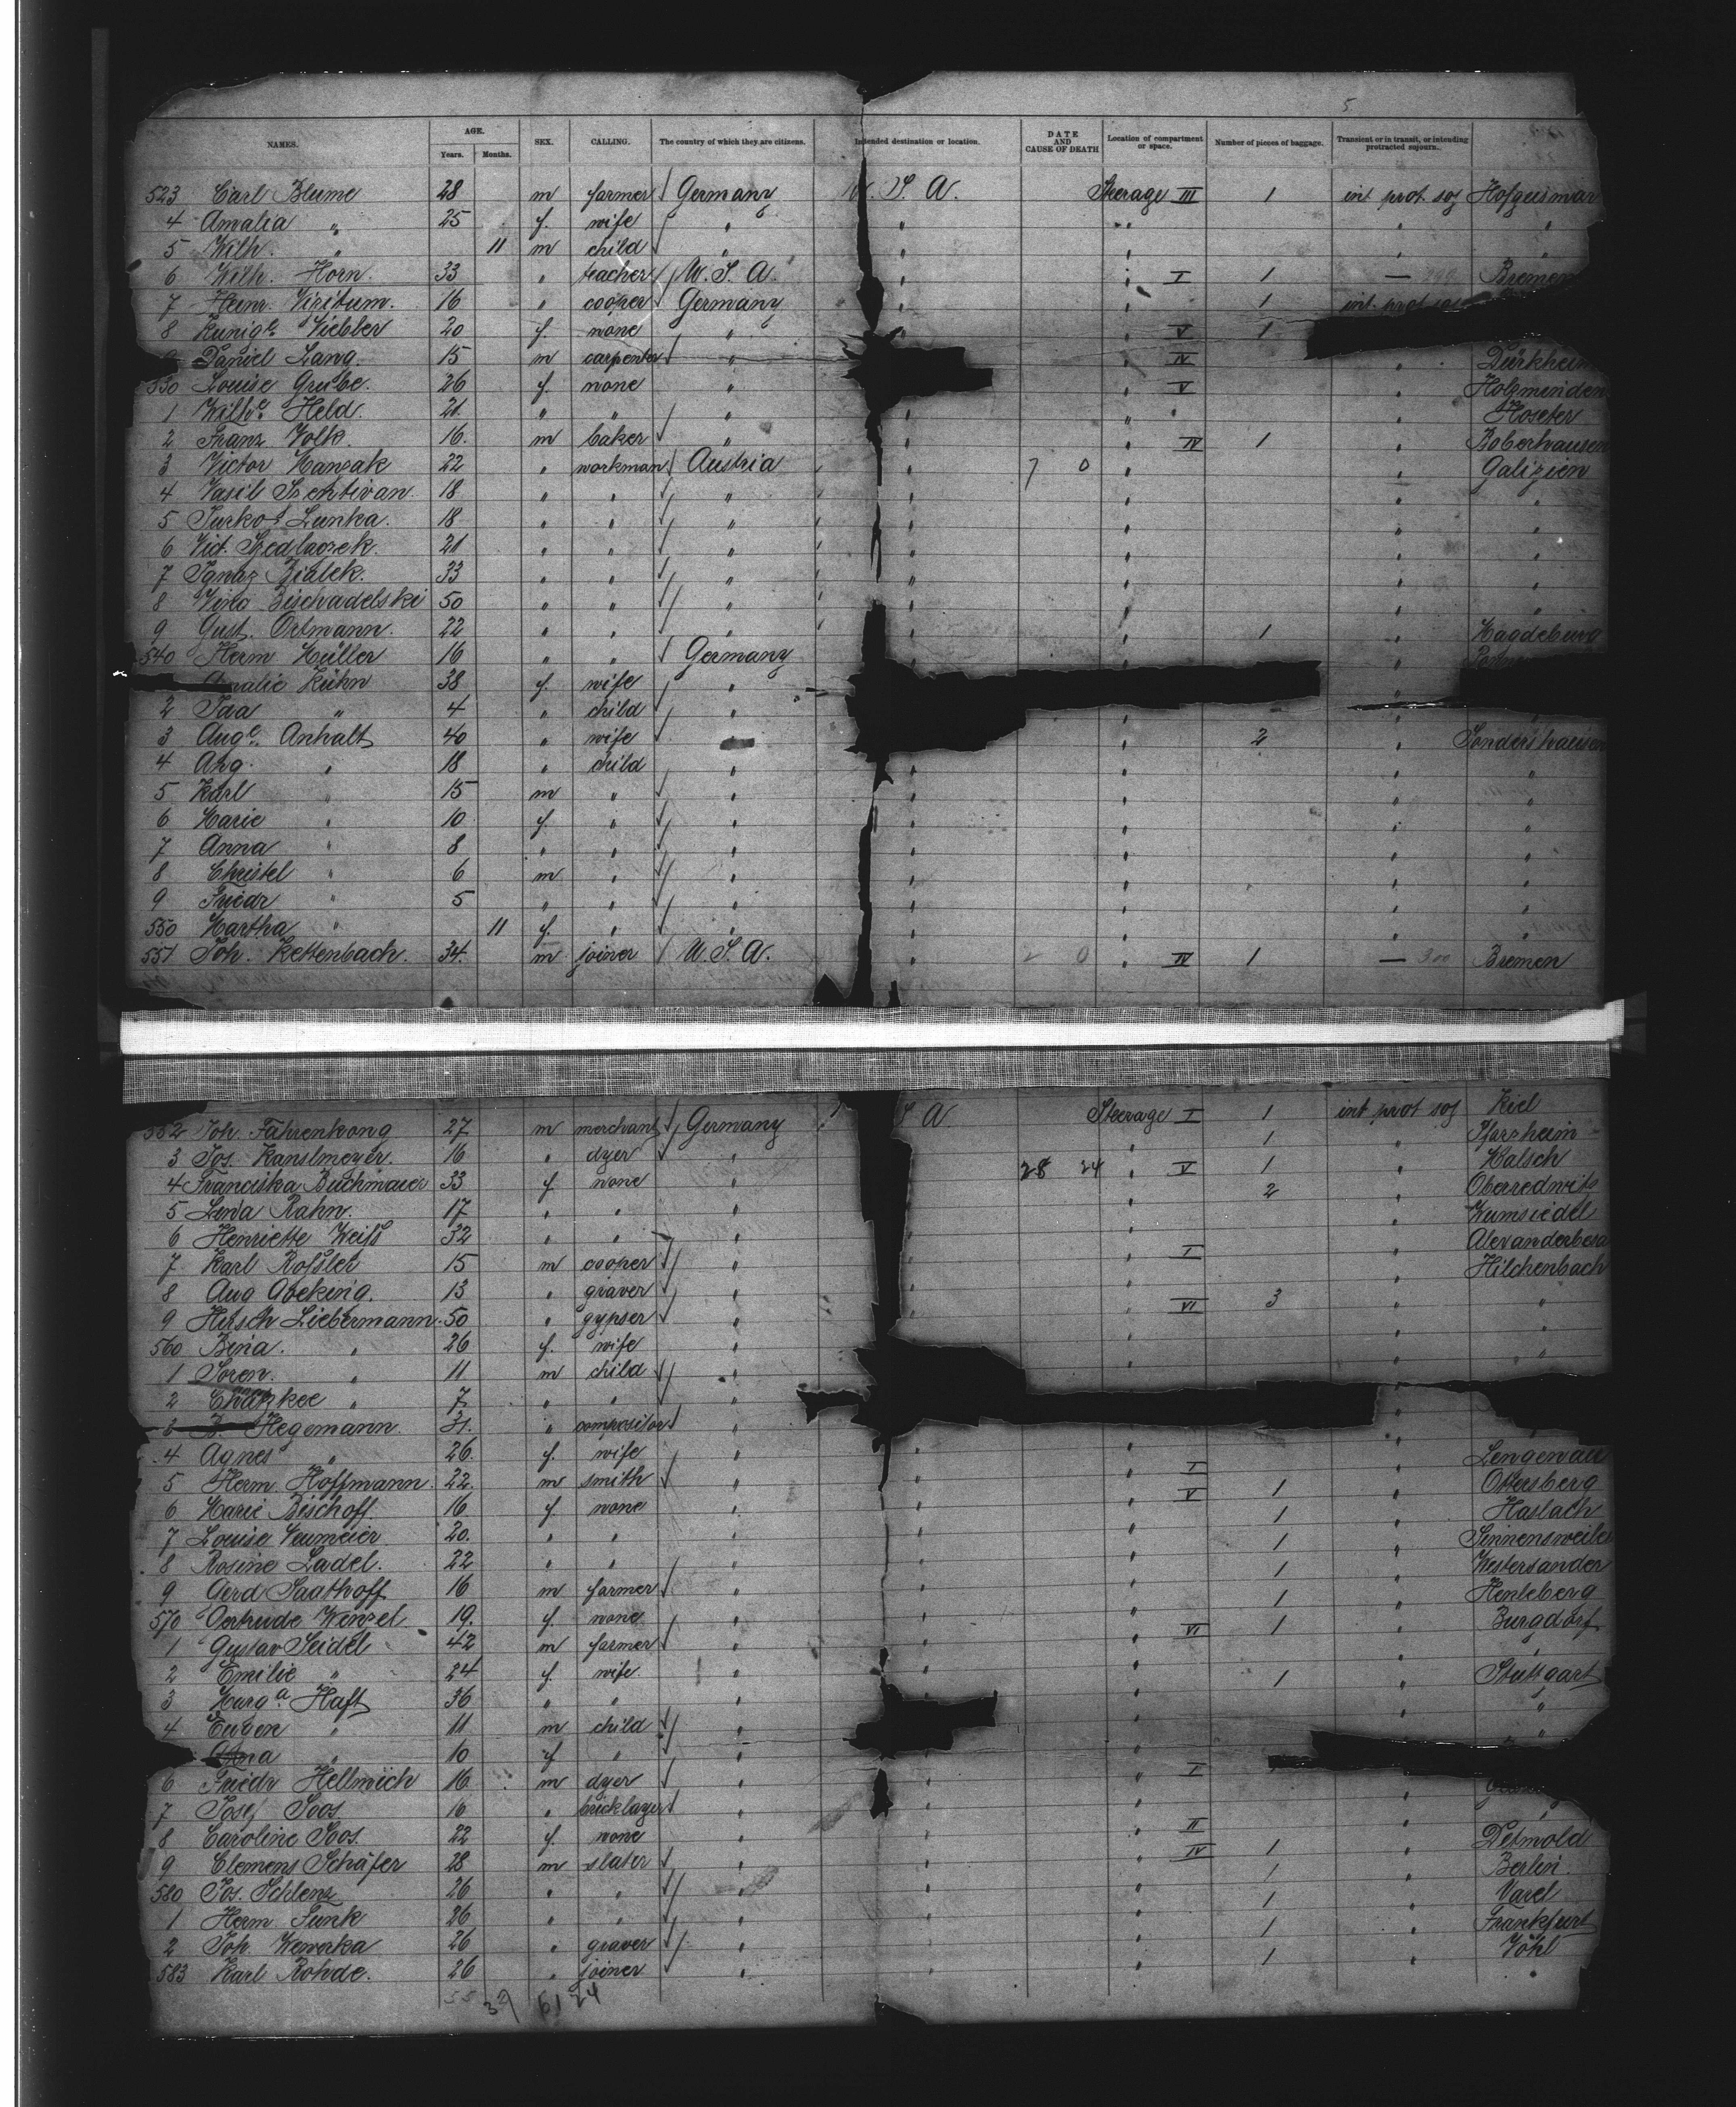 5.
NAMES. AGE. Years. Months. SEX. CALLING. The country of which they are citizens. Intended destination or location. DATE AND CAUSE OF DEATH Location of compartment or space. Number of pieces of baggage. Transient or in transit, or intending protracted sojourn.
523 Carl Blume 28 m farmer Germany U. S. A. Steerage III 1 int prot soj Hofgeismar
4 Amalia " 25 f. wife " " " " "
5 Wilh. " 11 m child " " " " "
6 Wilh. Horn. 33 " teacher U. S. A. " " I 1 — Bremen
7 Heinr. 16 " cooper Germany " " 1 int. prot soj
8 20 f. none " " " V 1
Daniel Lang. 15 m carpenter " " IV " Dürkheim
530 Louise Grube. 26 f. none " " V " Holzminden
1 Wilhe. Held. 21. " " " " " " "
2 Franz Volk. 16. m baker " " " IV 1 "
3 Victor 22 " workman Austria " 7 0 " " Galizien
4 Vasil 18 " " " " " " "
5 Lunka. 18 " " " " " " "
6 Vict. Szedlaczek. 21 " " " " " " "
7 Ignaz Bialek. 33 " " " " " " "
8 50 " " " " " " "
9 Gust. Ortmann. 22 " " " " " 1 " Magdeburg
540 Herm Müller 16 " " Germany "
Amalie Kühn 38 f. wife " "
2 Ida " 4 " child "
3 Auge. Anhalt 40 " wife " 2 " Sondershausen
4 Aug. " 18 " child " " " " "
5 Karl " 15 m " " " " " "
6 Marie " 10 f. " " " " " "
7 Anna " 8 " " " " " " "
8 Christel " 6 m " " " " " "
9 Friedr " 5 " " " " " " "
550 Martha " 11 f. " " " " " "
551 Joh. Kettenbach. 34. m joiner U. S. A. " 2 0 " IV 1 — 300 Bremen
552 Joh. Fährenkong 27 m merchant Germany S A Steerage I 1 int prot soj Kiel
3 Jos. Kanslmeyer. 16 " dyer " " 1 " Pforzheim
4 Franciska Buchmaier 33 f. none " 28 24 " V 1 " Malsch
5 Lena Rahn. 17 " " " " 2 " Oberredwitz
6 Henriette Weiß 32 " " " " " Wunsiedel
7 Karl Roßler 15 m cooper " " I "
8 Aug 13 " graver " " " Hilchenbach
9 Hirsch Liebermann. 50 " gypser " " " VI 3 " "
560 Bina. " 26 f. wife " " " " "
1 Soren. " 11 m child " " " "
2 " 7 " " "
3 B. Hegemann. 31. " compositor " "
4 Agnes " 26. f. wife " " "
5 Herm. Hoffmann. 22. m smith " " " I " Lengenau
6 Marie Bischoff. 16 f. none " " " V 1 " Ottersberg
7 Louise Neumeier 20. " " " " " 1 " Haslach
8 Rosine Ladel. 22 " " " " " 1 "
9 Gerd Saathoff 16 m farmer " " " 1 " Westersander
570 Gertrude Wenzel 19. f. none " " " 1 " Henleberg
1 Gustav Seidel 42 m farmer " " " VI 1 " Burgdorf
2 Emilie " 24 f. wife " " " " "
3 Marga. Haft 36 " " " " " 1 " Stuttgart
4 Eugen " 11 m child " " " "
Anna " 10 f. " " " "
6 Friedr Hellmich 16 m dyer " " I
7 Josef Soos 16 " bricklayer " " "
8 Caroline Soos. 22 f. none " " " II " "
9 Clemens Schäfer 28 m slater " " " IV 1 " Detmold
580 Jos. Schlenz 26 " " " " " 1 " Berlin.
1 Herm Funk 26 " " " " " 1 " Varel
2 Joh. Wewerka 26 " graver " " " 1 " Frankfurt
583 Karl Rohde. 26 " joiner " " " 1 " Vöhl
55 37 61 24